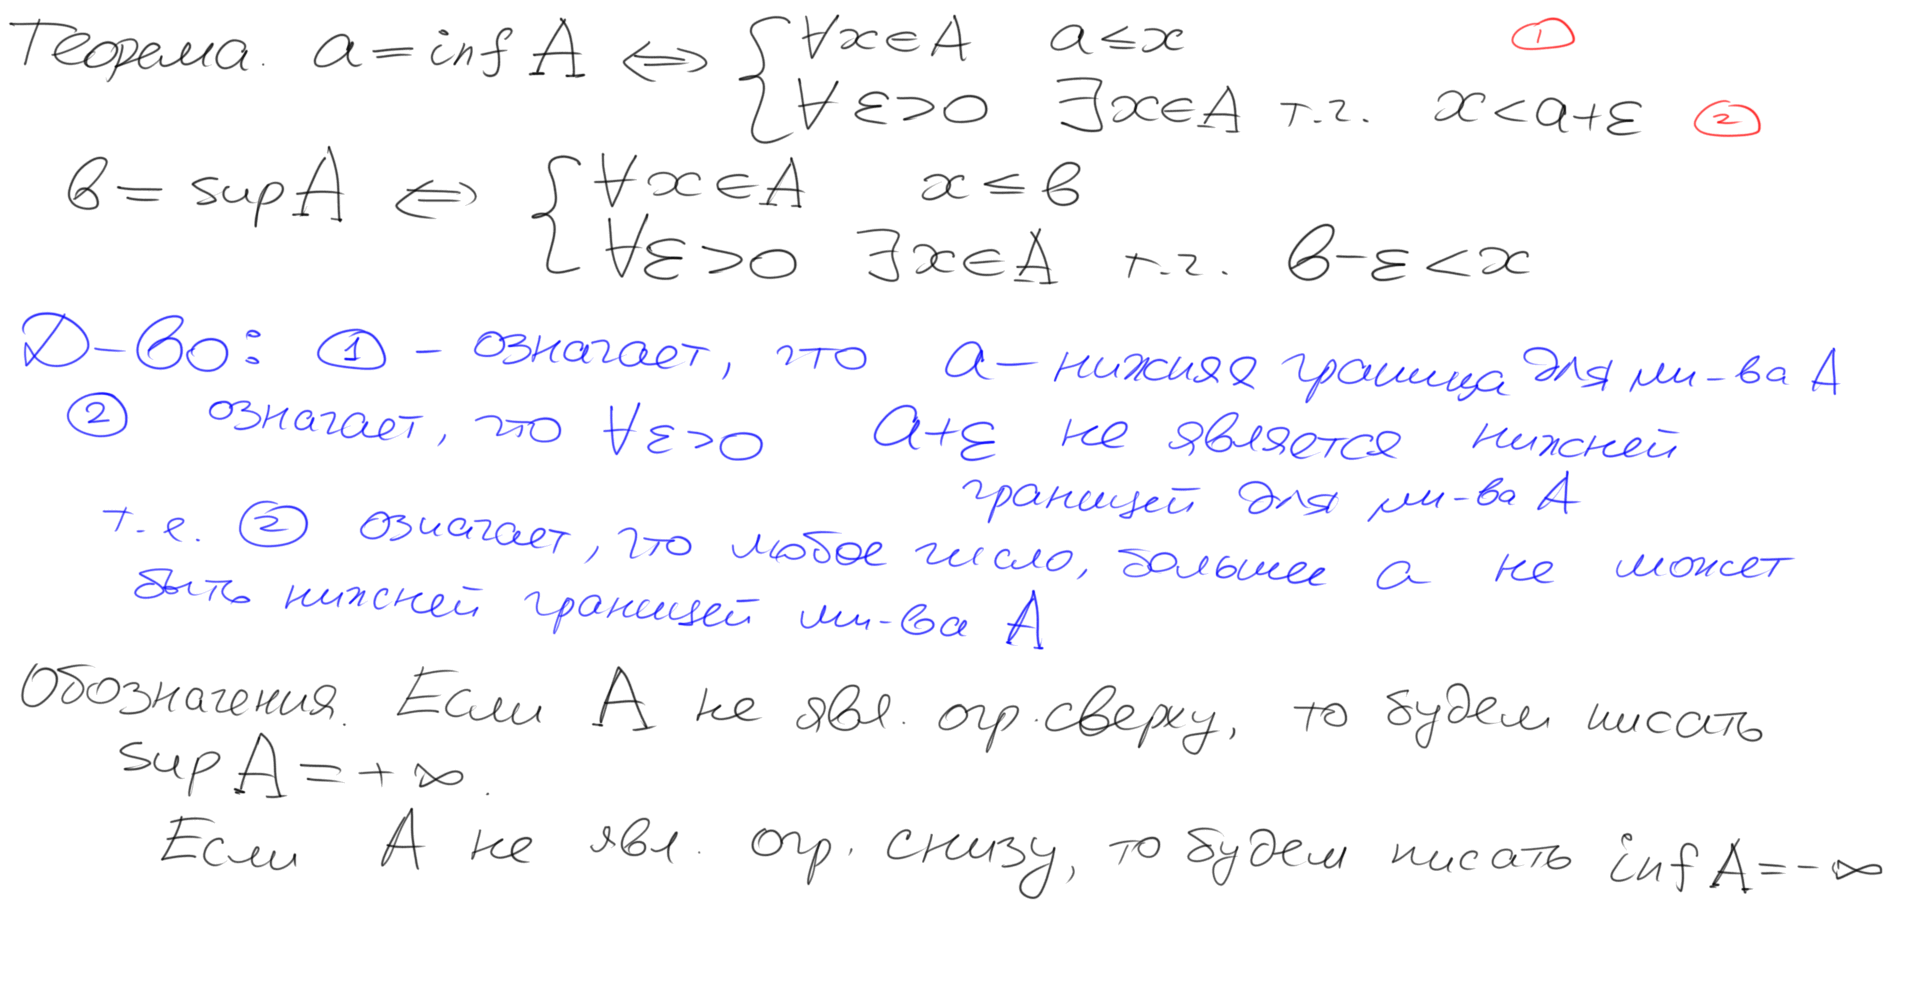 Теорема. a = inf A ⇔ { ∀x∈A a ≤ x ①
∀ε>0 ∃x∈A т.ч. x < a+ε ②
b = sup A ⇔ { ∀x∈A x ≤ b
∀ε>0 ∃x∈A т.ч. b-ε < x
Д-во: ① - означает, что a — нижняя граница для мн-ва A
② означает, что ∀ε>0 a+ε не является нижней
границей для мн-ва A
т.е. ② означает, что любое число, большее a не может
быть нижней границей мн-ва A
Обозначения. Если A не явл. огр. сверху, то будем писать
sup A = +∞.
Если A не явл. огр. снизу, то будем писать inf A = -∞